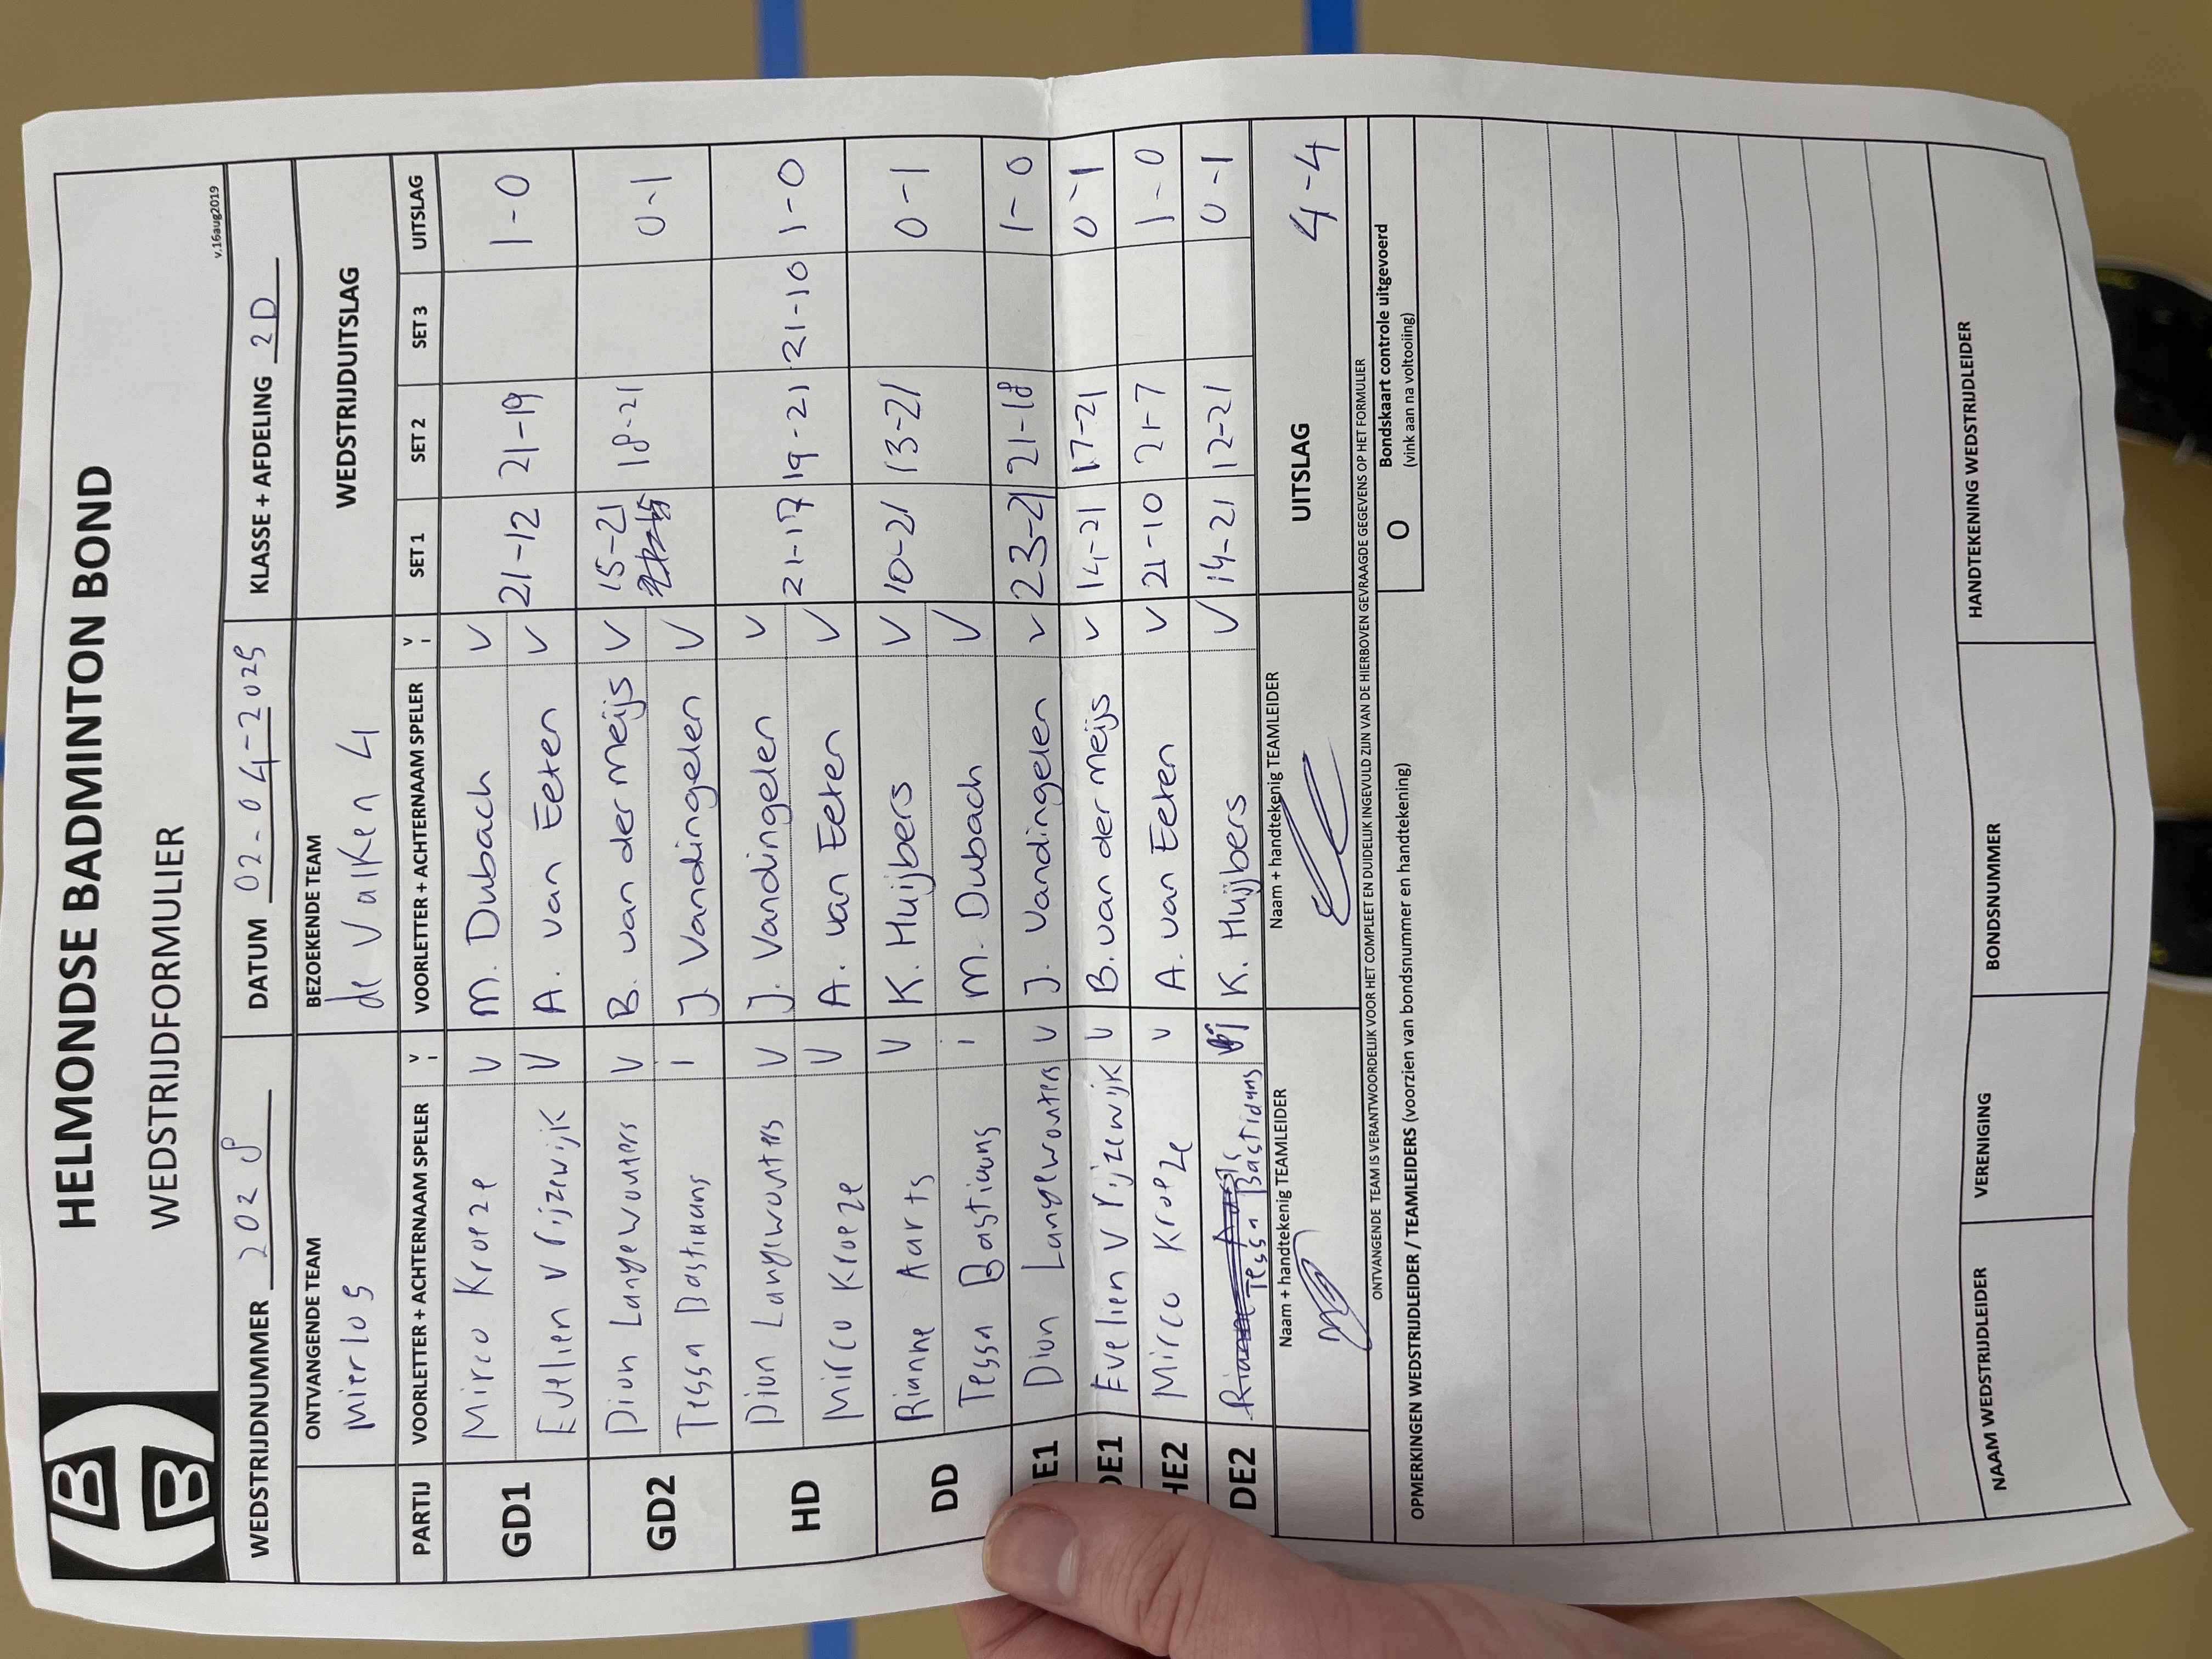 HELMONDSE BADMINTON BOND
WEDSTRIJDFORMULIER
v.16aug2019
WEDSTRIJDNUMMER 2028 DATUM 02-04-2025 KLASSE + AFDELING 2D
ONTVANGENDE TEAM BEZOEKENDE TEAM WEDSTRIJDUITSLAG
Mierlo 5 de Valken 4
PARTIJ VOORLETTER + ACHTERNAAM SPELER V I VOORLETTER + ACHTERNAAM SPELER V I SET 1 SET 2 SET 3 UITSLAG
GD1 Mirco Kroeze V M. Dubach V 21-12 21-19 1-0
Evelien Vrijzewijk V A. van Eeten V
GD2 Dion Langewouters V B. van der Meijs V 15-21 18-21 0-1
Tessa Bastiaans I J. Vandingelen V
HD Dion Langewouters V J. Vandingelen V 21-17 19-21 21-10 1-0
Mirco Kroeze V A. van Eeten V
DD Rianne Aarts V K. Huijbers V 10-21 13-21 0-1
Tessa Bastiaans I M. Dubach V
E1 Dion Langewouters V J. Vandingelen V 23-21 21-18 1-0
DE1 Evelien Vrijzewijk V B. van der Meijs V 14-21 17-21 0-1
HE2 Mirco Kroeze V A. van Eeten V 21-10 21-7 1-0
DE2 Tessa Bastiaans I K. Huijbers V 14-21 12-21 0-1
Naam + handtekenig TEAMLEIDER Naam + handtekenig TEAMLEIDER UITSLAG 4-4
ONTVANGENDE TEAM IS VERANTWOORDELIJK VOOR HET COMPLEET EN DUIDELIJK INGEVULD ZIJN VAN DE HIERBOVEN GEVRAAGDE GEGEVENS OP HET FORMULIER
OPMERKINGEN WEDSTRIJDLEIDER / TEAMLEIDERS (voorzien van bondsnummer en handtekening) O Bondskaart controle uitgevoerd
(vink aan na voltooiing)
NAAM WEDSTRIJDLEIDER VERENIGING BONDSNUMMER HANDTEKENING WEDSTRIJDLEIDER